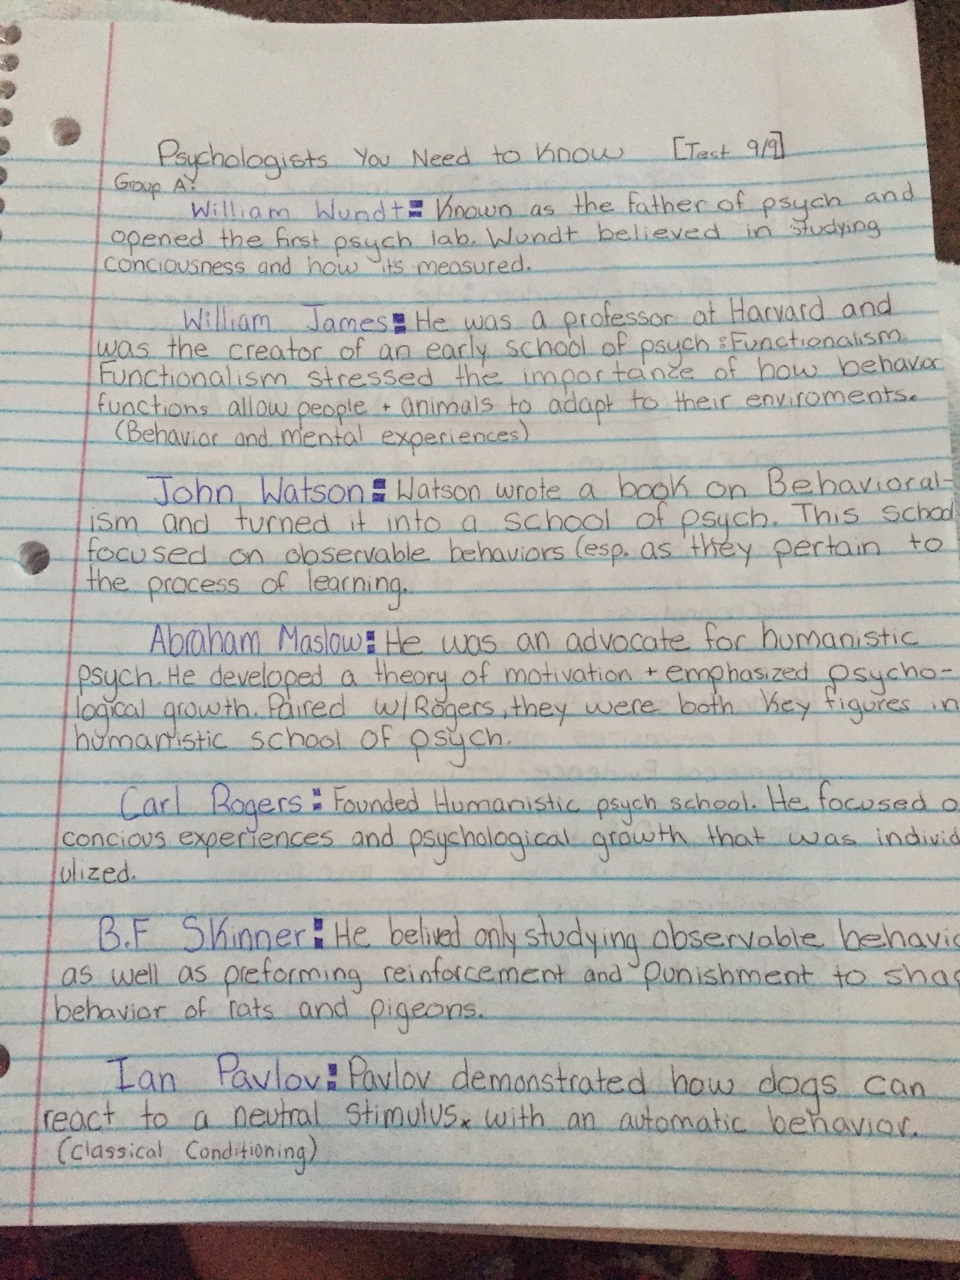 Psychologists You Need to Know [Test 9/9]
Group A:
William Wundt: Known as the father of psych and
opened the first psych lab. Wundt believed in studying
conciousness and how its measured.
William James: He was a professor at Harvard and
was the creator of an early school of psych: Functionalism.
Functionalism stressed the importance of how behavior
functions allow people + animals to adapt to their enviroments.
(Behavior and mental experiences)
John Watson: Watson wrote a book on Behavioral-
ism and turned it into a school of psych. This school
focused on observable behaviors (esp. as they pertain to
the process of learning.
Abraham Maslow: He was an advocate for humanistic
psych. He developed a theory of motivation + emphasized psycho-
logical growth. Paired w/Rogers, they were both key figures in
humanistic school of psych.
Carl Rogers: Founded Humanistic psych school. He focused o
concious experiences and psychological growth that was individ
ulized.
B.F Skinner: He belived only studying observable behavio
as well as preforming reinforcement and punishment to shap
behavior of rats and pigeons.
Ian Pavlov: Pavlov demonstrated how dogs can
react to a neutral stimulus with an automatic behavior.
(Classical Conditioning)